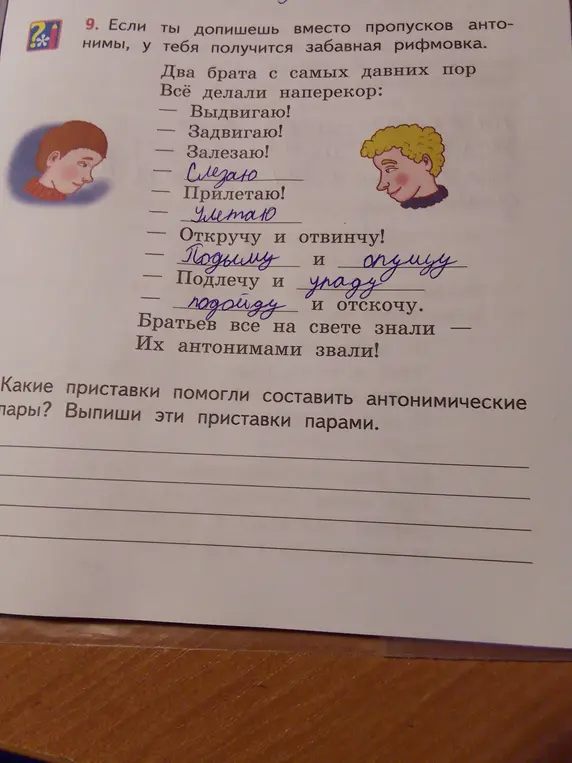 9. Если ты допишешь вместо пропусков анто-
нимы, у тебя получится забавная рифмовка.
Два брата с самых давних пор
Всё делали наперекор:
— Выдвигаю!
— Задвигаю!
— Залезаю!
— Слезаю
— Прилетаю!
— Улетаю
— Откручу и отвинчу!
— Подыму и опущу
— Подлечу и упаду
— подойду и отскочу.
Братьев все на свете знали —
Их антонимами звали!
Какие приставки помогли составить антонимические
пары? Выпиши эти приставки парами.